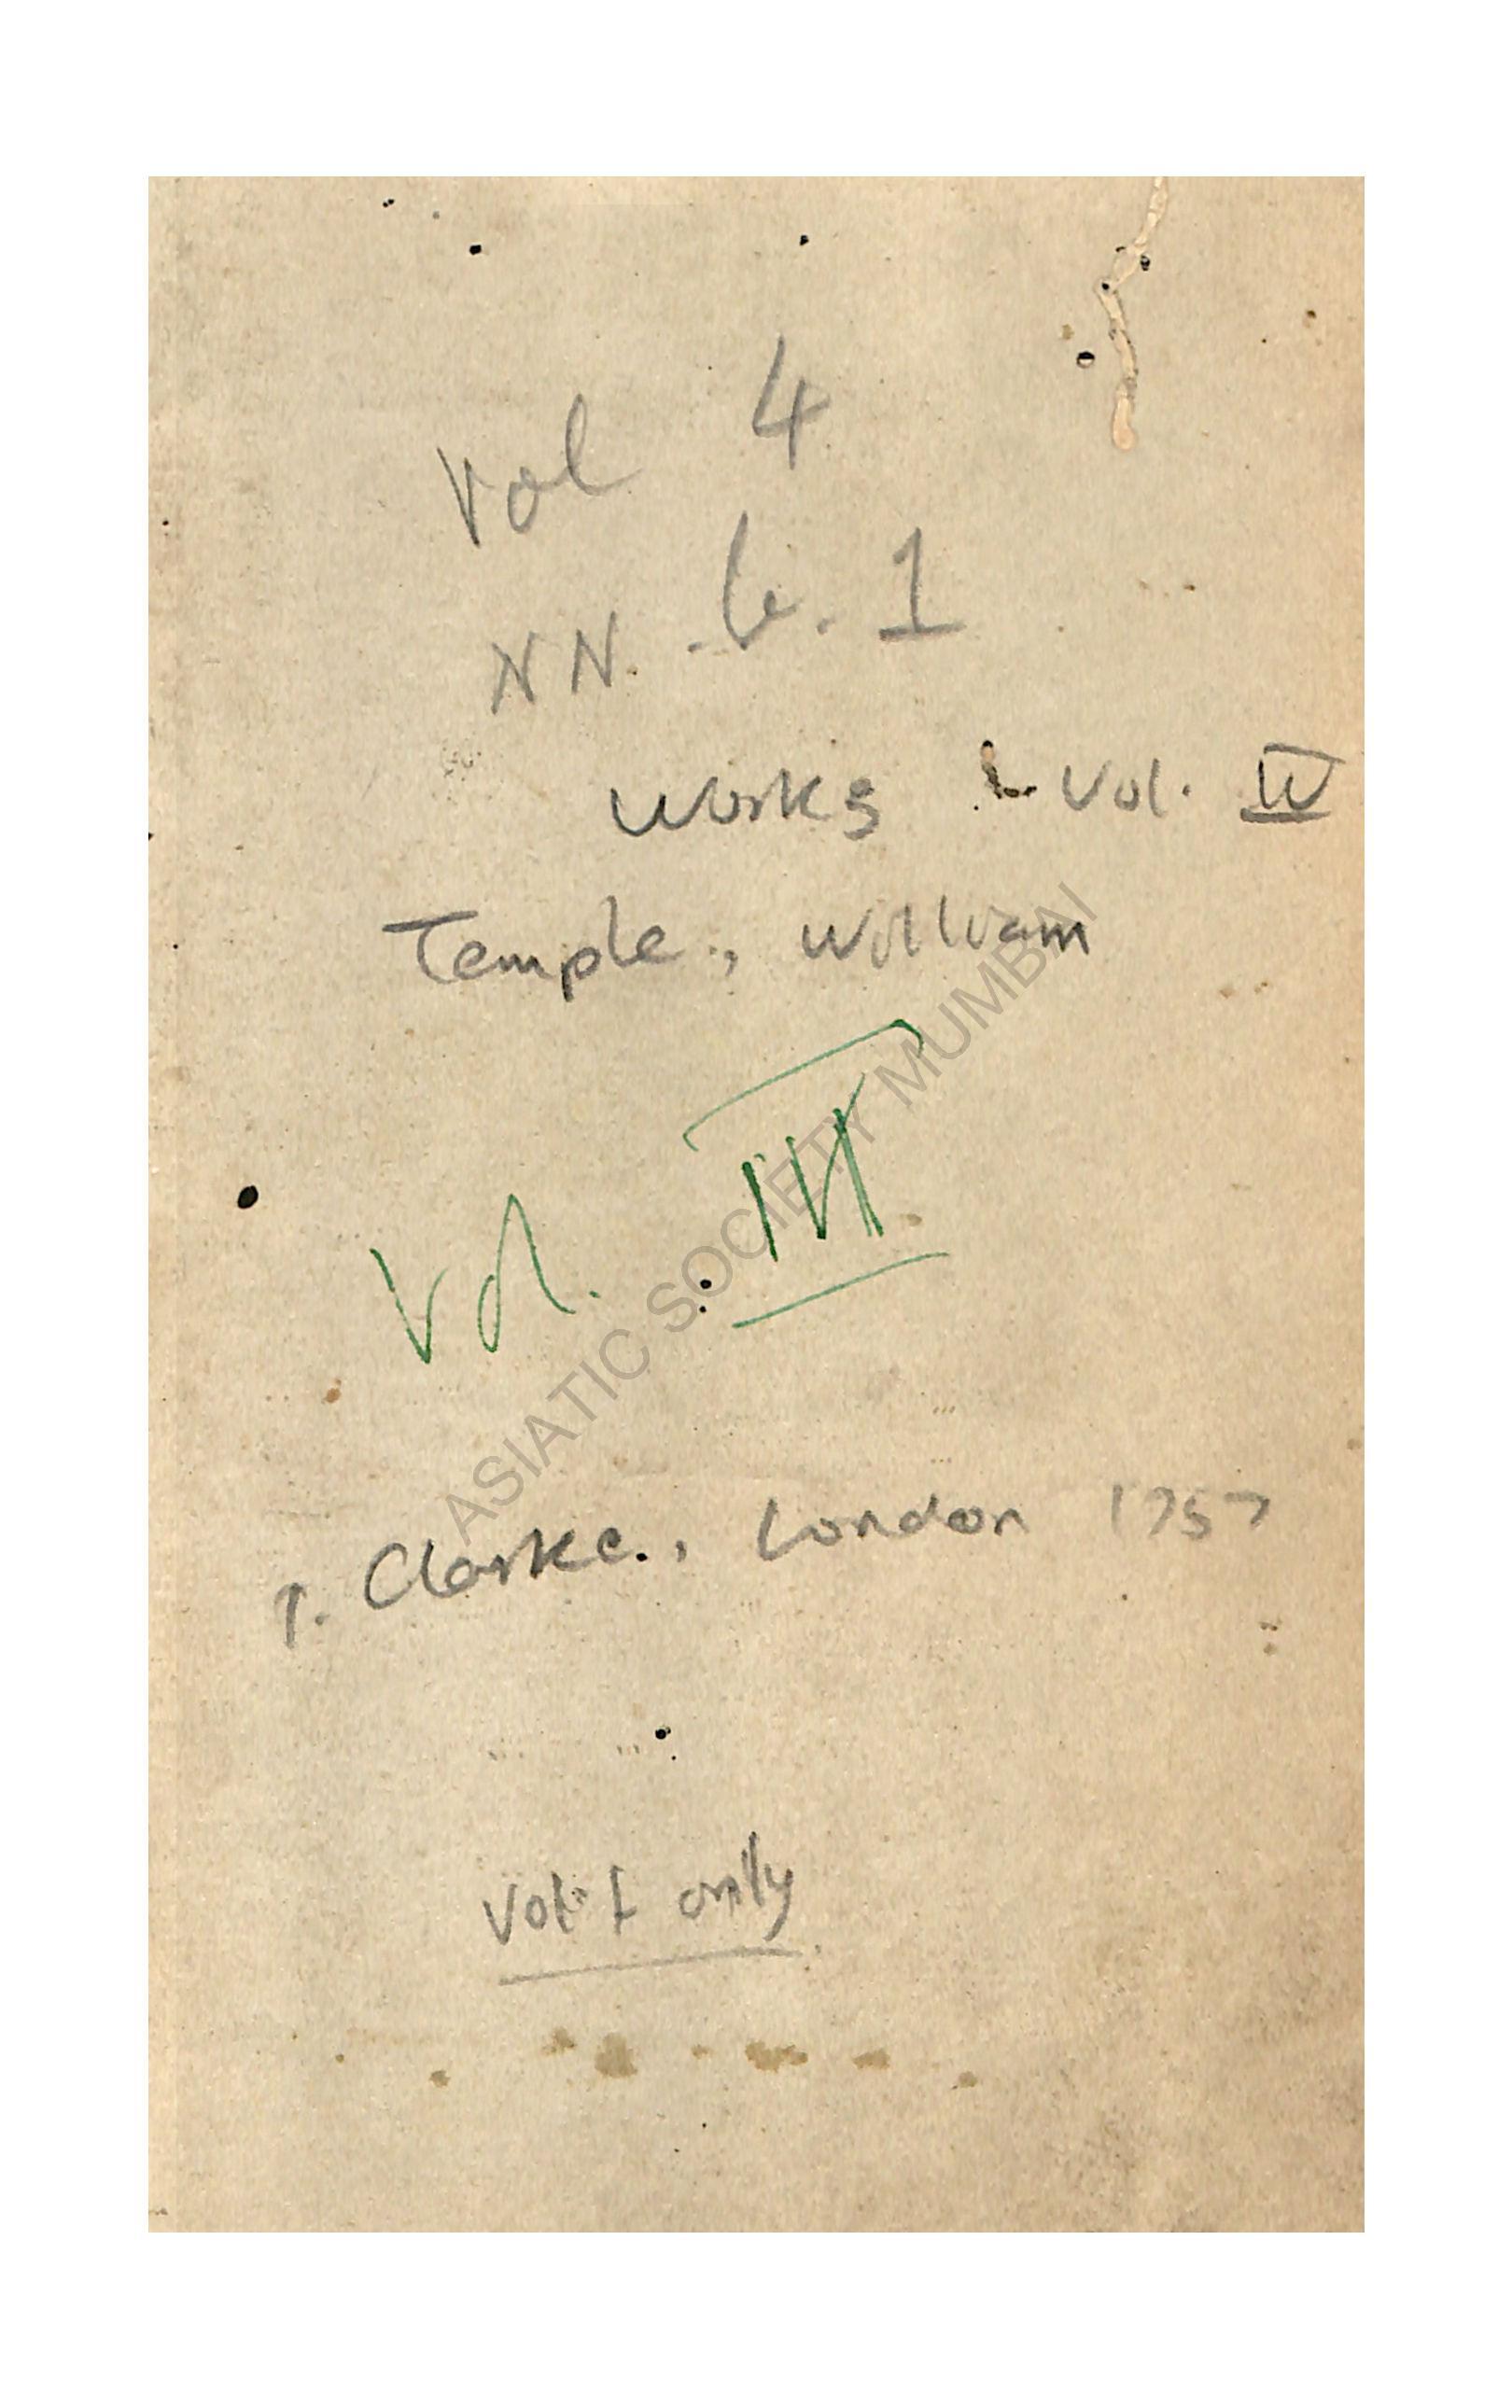 Vol 4
NN. b. 1
Works - Vol. IV
Temple, William
Vol.
ASIATIC SOCIETY MUMBAI
Clarke., London 1757
Vol. I only